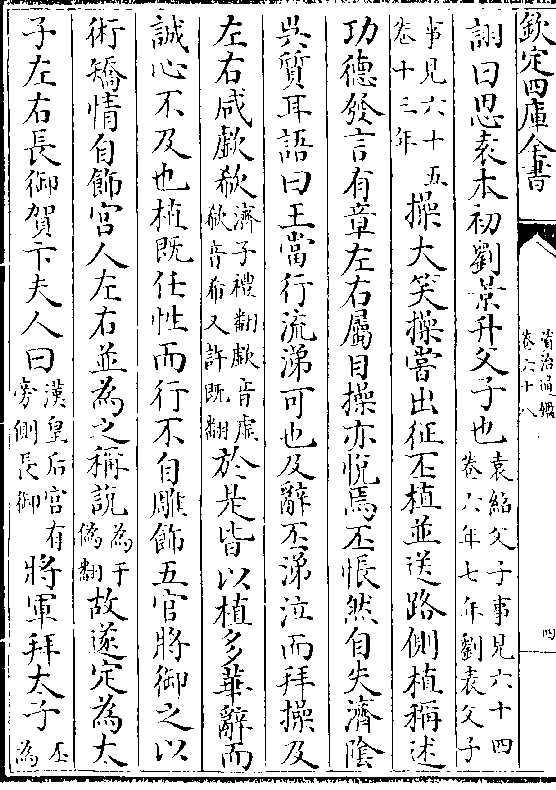 欽定四庫全書
資治通鑑
卷六十八
四
詡曰思袁本初劉景升父子也袁紹父子事見六十四卷六年七年劉袁父子
事見六十五卷十三年操大笑操嘗出征丕植並送路側植稱述
功德發言有章左右屬目操亦悅焉丕悵然自失濟陰
吳質耳語曰王當行流涕可也及辭丕涕泣而拜操及
左右咸歔欷濟子禮翻歔音虛欷音希又許既翻於是皆以植多華辭而
誠心不及也植既任性而行不自雕飾五官將御之以
術矯情自飾宮人左右並為之稱說為于偽翻故遂定為太
子左右長御賀卞夫人曰漢皇后宮有旁側長御將軍拜太子丕為